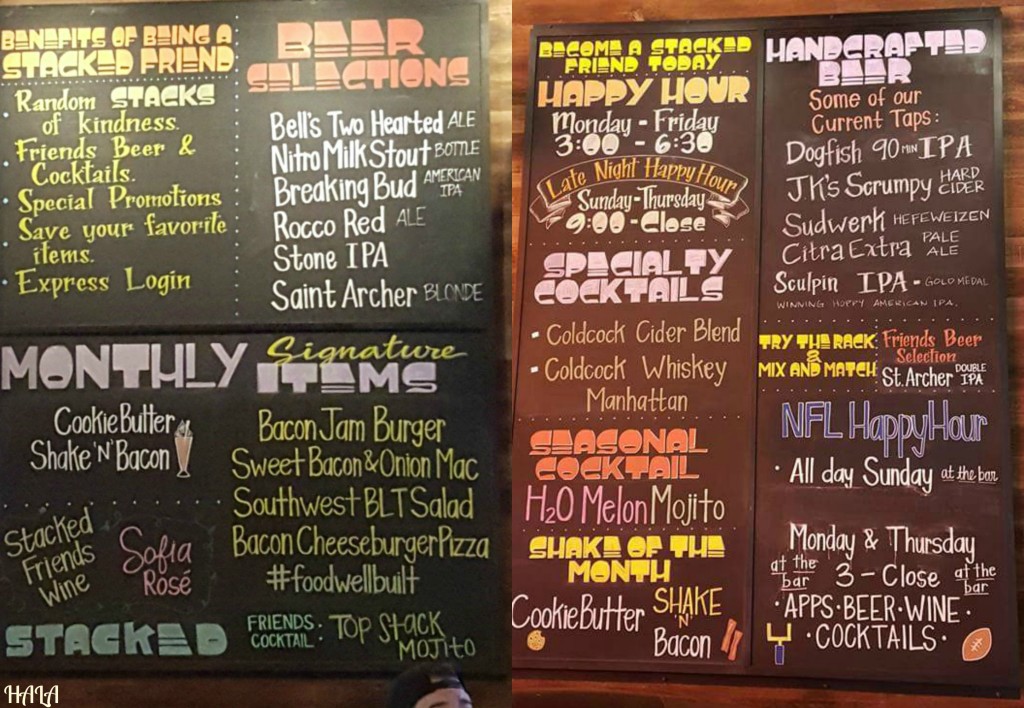 BENEFITS OF BEING A
STACKED FRIEND
Random STACKS
of kindness.
• Friends Beer &
Cocktails.
• Special Promotions
• Save your favorite
items.
• Express Login
BEER
SELECTIONS
Bell's Two Hearted ALE
Nitro Milk Stout BOTTLE
Breaking Bud AMERICAN IPA
Rocco Red ALE
Stone IPA
Saint Archer BLONDE
MONTHLY Signature
ITEMS
Cookie Butter
Shake 'N' Bacon
Bacon Jam Burger
Sweet Bacon & Onion Mac
Southwest BLT Salad
Bacon Cheeseburger Pizza
#foodwellbuilt
Stacked
Friends
Wine
Sofia
Rosé
STACKED
FRIENDS
COCKTAIL:
TOP STACK
MOJITO
HALA
BECOME A STACKED
FRIEND TODAY
HAPPY HOUR
Monday - Friday
3:00 - 6:30
Late Night Happy Hour
Sunday - Thursday
9:00 - Close
SPECIALTY
COCKTAILS
• Coldcock Cider Blend
• Coldcock Whiskey
Manhattan
SEASONAL
COCKTAIL
H2O Melon Mojito
SHAKE OF THE
MONTH
Cookie Butter SHAKE
'N'
Bacon
HANDCRAFTED
BEER
Some of our
Current Taps:
Dogfish 90 MIN IPA
JK's Scrumpy HARD CIDER
Sudwerk HEFEWEIZEN
Citra Extra PALE ALE
Sculpin IPA - GOLD MEDAL
WINNING HOPPY AMERICAN IPA.
TRY THE RACK
&
MIX AND MATCH
Friends Beer
Selection
St. Archer DOUBLE IPA
NFL Happy Hour
• All day Sunday at the bar
Monday & Thursday
at the bar 3 - Close at the bar
• APPS • BEER • WINE •
• COCKTAILS •